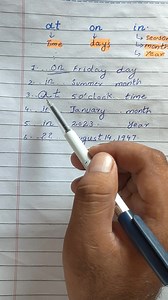 at on in
Time days Season
month
Year
1. On Friday day
2. in Summer month
3. at 5 o'clock time
4. in January month
5. in 2023 Year
6. August 14, 1947